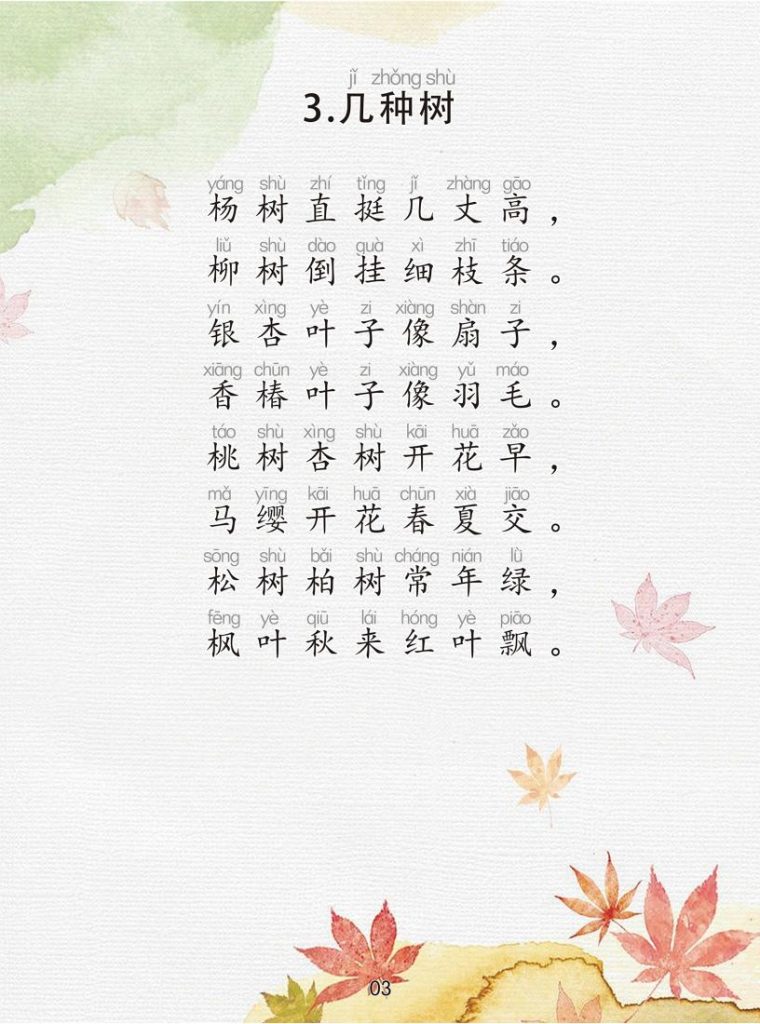 jǐ zhǒng shù
3.几种树
yáng shù zhí tǐng jǐ zhàng gāo
杨树直挺几丈高，
liǔ shù dào guà xì zhī tiáo
柳树倒挂细枝条。
yín xìng yè zi xiàng shàn zi
银杏叶子像扇子，
xiāng chūn yè zi xiàng yǔ máo
香椿叶子像羽毛。
táo shù xìng shù kāi huā zǎo
桃树杏树开花早，
mǎ yīng kāi huā chūn xià jiāo
马缨开花春夏交。
sōng shù bǎi shù cháng nián lǜ
松树柏树常年绿，
fēng yè qiū lái hóng yè piāo
枫叶秋来红叶飘。
03